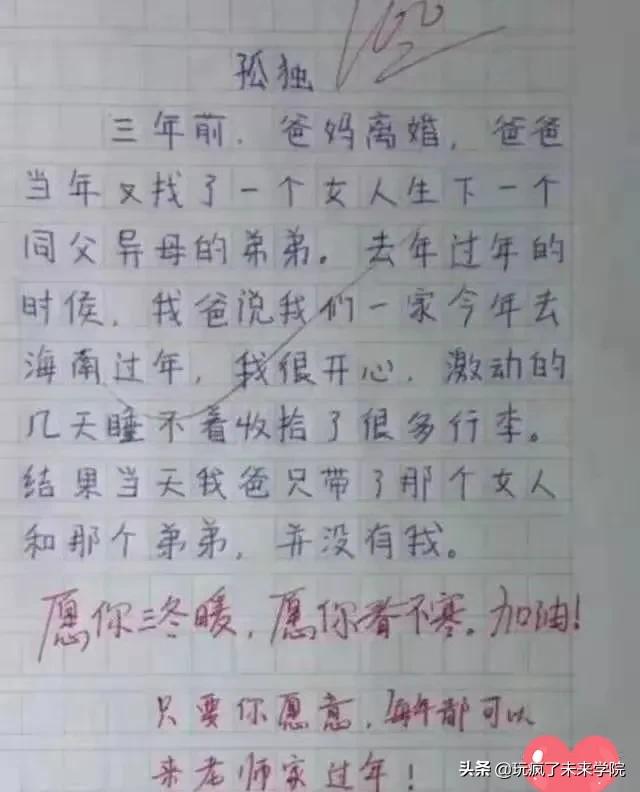 100
孤独
三年前.爸妈离婚,爸爸
当年又找了一个女人生下一个
同父异母的弟弟。去年过年的
时侯,我爸说我们一家今年去
海南过年,我很开心.激动的
几天睡不着收拾了很多行李。
结果当天我爸只带了那个女人
和那个弟弟,并没有我。
愿你三冬暖,愿你春不寒。加油!
只要你愿意,每年都可以
来老师家过年!
头条@玩疯了未来学院